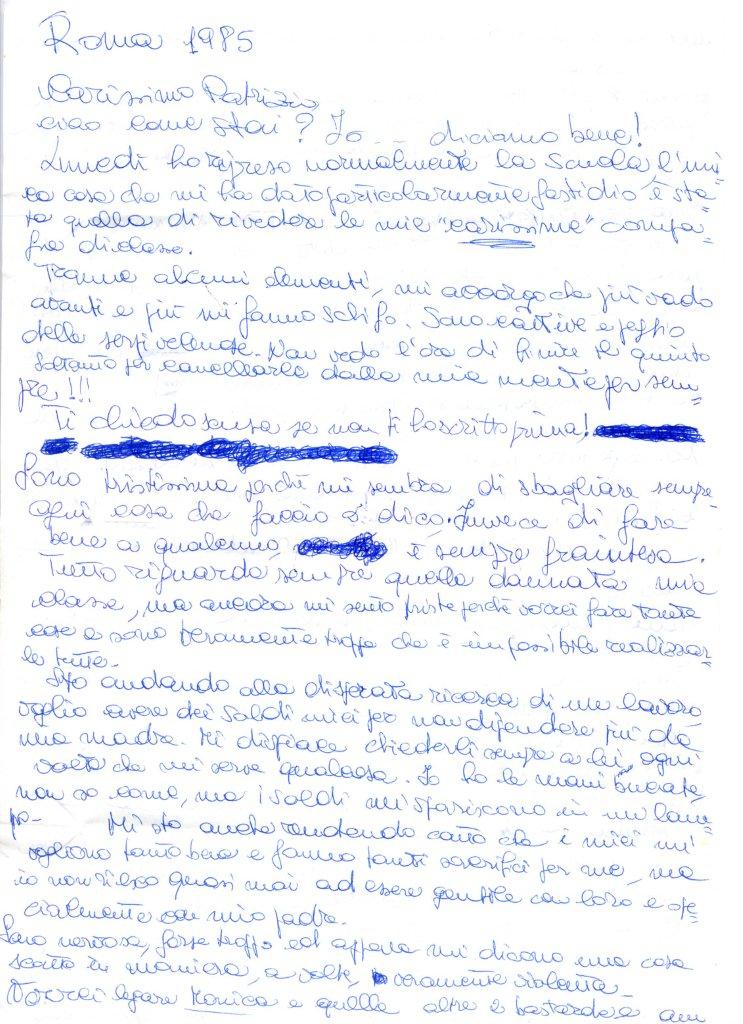 Roma 1985
Carissimo Patrizio
ciao come stai? Io... diciamo bene!
Lunedì ho ripreso normalmente la scuola, l'uni=
ca cosa che mi ha dato particolarmente fastidio è sta=
ta quella di rivedere le mie "carissime" compa=
gne di classe.
Tranne alcuni elementi, mi accorgo che più vado
avanti e più mi fanno schifo. Sono cattive e peggio
delle serpi velenose. Non vedo l'ora di finire il quinto
soltanto per cancellarle dalla mia mente per sem=
pre!!!
Ti chiedo scusa se non ti ho scritto prima!
Sono tristissima perché mi sembra di sbagliare sempre
ogni cosa che faccio o dico. Invece di fare
bene a qualcuno, è sempre fraintesa.
Tutto riguarda sempre quella dannata mia
classe, ma ancora mi sento triste perché vorrei fare tante
cose e sono veramente troppe che è impossibile realizzar=
le tutte.
Sto andando alla disperata ricerca di un lavoro,
voglio avere dei soldi miei per non dipendere più da
mia madre. Mi dispiace chiederli sempre a lei, ogni
volta che mi serve qualcosa. Io ho le mani bucate,
non so come, ma i soldi mi spariscono in un lam=
po. Mi sto anche rendendo conto che i miei mi
vogliono tanto bene e fanno tanti sacrifici per me, ma
io non riesco quasi mai ad essere gentile con loro e spe=
cialmente con mio padre.
Sono nervosa, forse troppo ed appena mi dicono una cosa
scatto in maniera, a volte, veramente violenta.
Vorrei legare Monica e quelle altre 2 bastarde a un